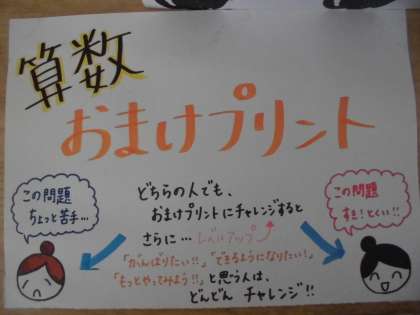 算数
おまけプリント
この問題
ちょっと苦手…
どちらの人でも、
おまけプリントにチャレンジすると
さらに… レベルアップ
この問題
すき!とくい!!
「がんばりたい!!」「できるようになりたい!」
「もっとやってみよう!!」と思う人は、
どんどん チャレンジ!!